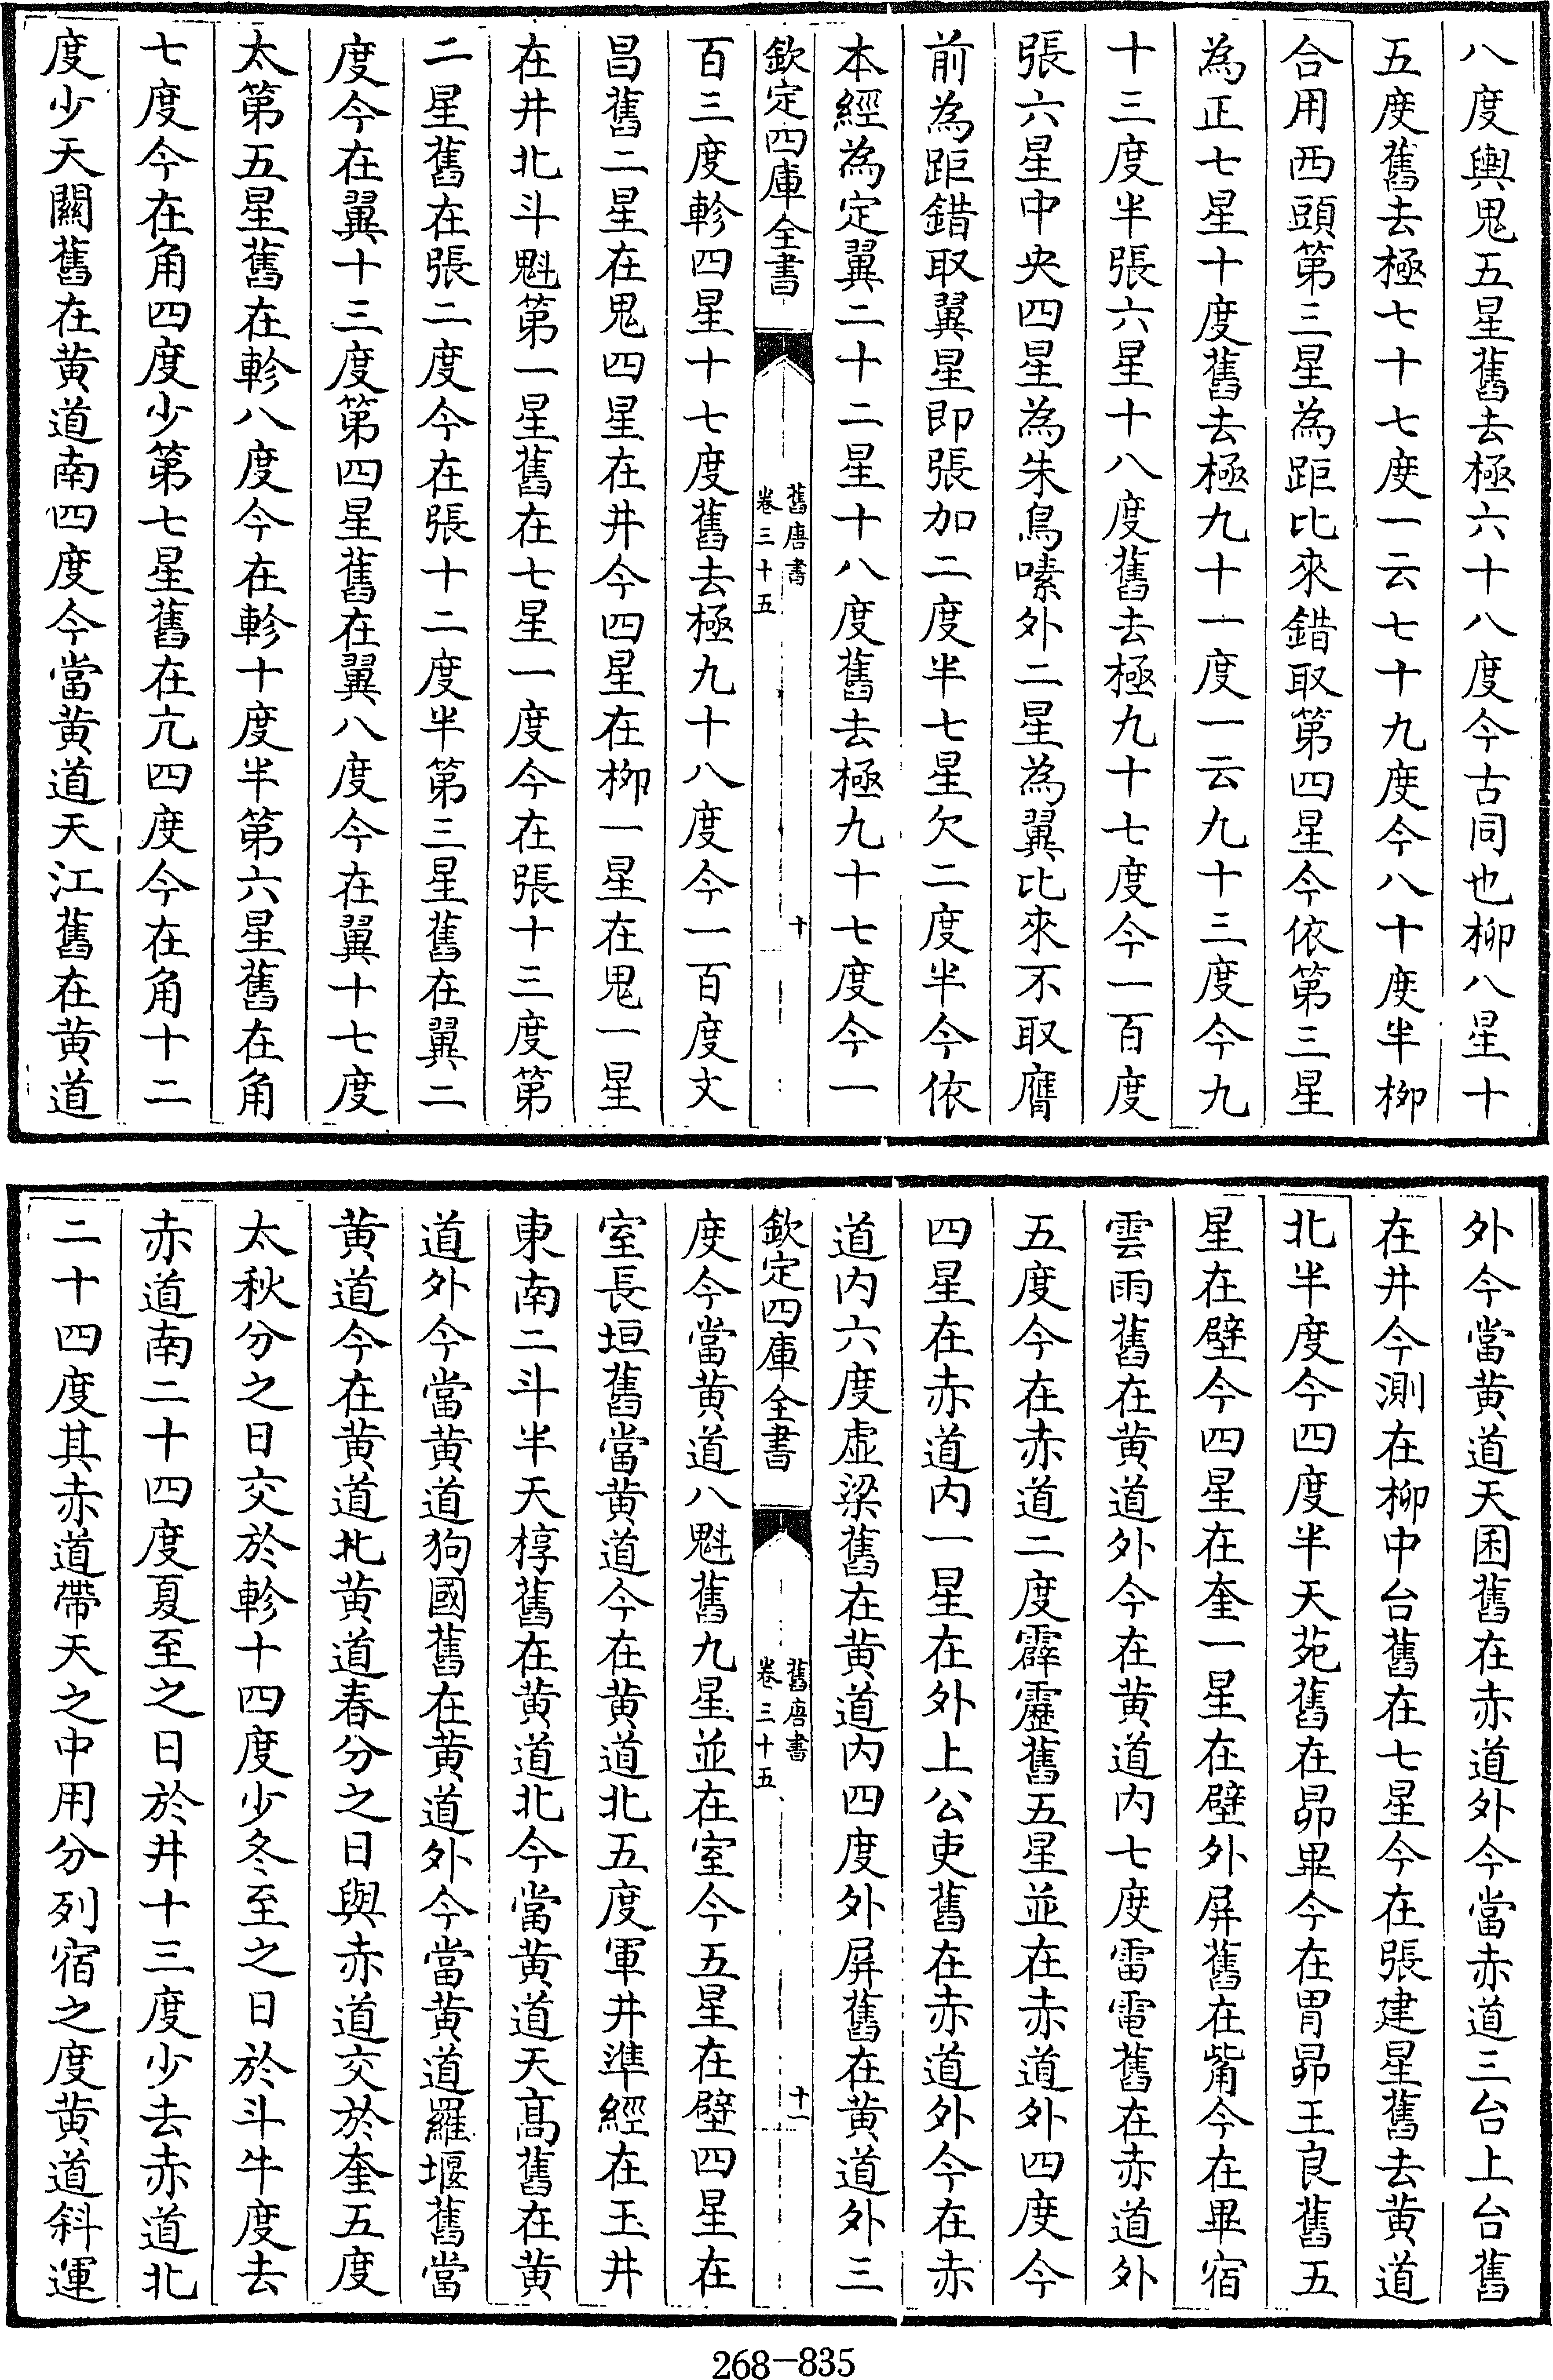 八度輿鬼五星舊去極六十八度今古同也柳八星十
五度舊去極七十七度一云七十九度今八十度半柳
合用西頭第三星為距比來錯取第四星今依第三星
為正七星十度舊去極九十一度一云九十三度今九
十三度半張六星十八度舊去極九十七度今一百度
張六星中央四星為朱鳥嗉外二星為翼比來不取膺
前為距錯取翼星即張加二度半七星欠二度半今依
本經為定翼二十二星十八度舊去極九十七度今一
欽定四庫全書
舊唐書
卷三十五
十
百三度軫四星十七度舊去極九十八度今一百度文
昌舊二星在鬼四星在井今四星在柳一星在鬼一星
在井北斗魁第一星舊在七星一度今在張十三度第
二星舊在張二度今在張十二度半第三星舊在翼二
度今在翼十三度第四星舊在翼八度今在翼十七度
太第五星舊在軫八度今在軫十度半第六星舊在角
七度今在角四度少第七星舊在亢四度今在角十二
度少天關舊在黄道南四度今當黄道天江舊在黄道
外今當黄道天囷舊在赤道外今當赤道三台上台舊
在井今測在柳中台舊在七星今在張建星舊去黄道
北半度今四度半天苑舊在昴畢今在胃昴王良舊五
星在壁今四星在奎一星在壁外屏舊在觜今在畢宿
雲雨舊在黄道外今在黄道内七度雷電舊在赤道外
五度今在赤道二度霹靂舊五星並在赤道外四度今
四星在赤道内一星在外上公吏舊在赤道外今在赤
道内六度虚梁舊在黄道内四度外屏舊在黄道外三
欽定四庫全書
舊唐書
卷三十五
十一
度今當黄道八魁舊九星並在室今五星在壁四星在
室長垣舊當黄道今在黄道北五度軍井準經在玉井
東南二斗半天椁舊在黄道北今當黄道天髙舊在黄
道外今當黄道狗國舊在黄道外今當黄道羅堰舊當
黄道今在黄道北黄道春分之日與赤道交於奎五度
太秋分之日交於軫十四度少冬至之日於斗牛度去
赤道南二十四度夏至之日於井十三度少去赤道北
二十四度其赤道帶天之中用分列宿之度黄道斜運
268-835